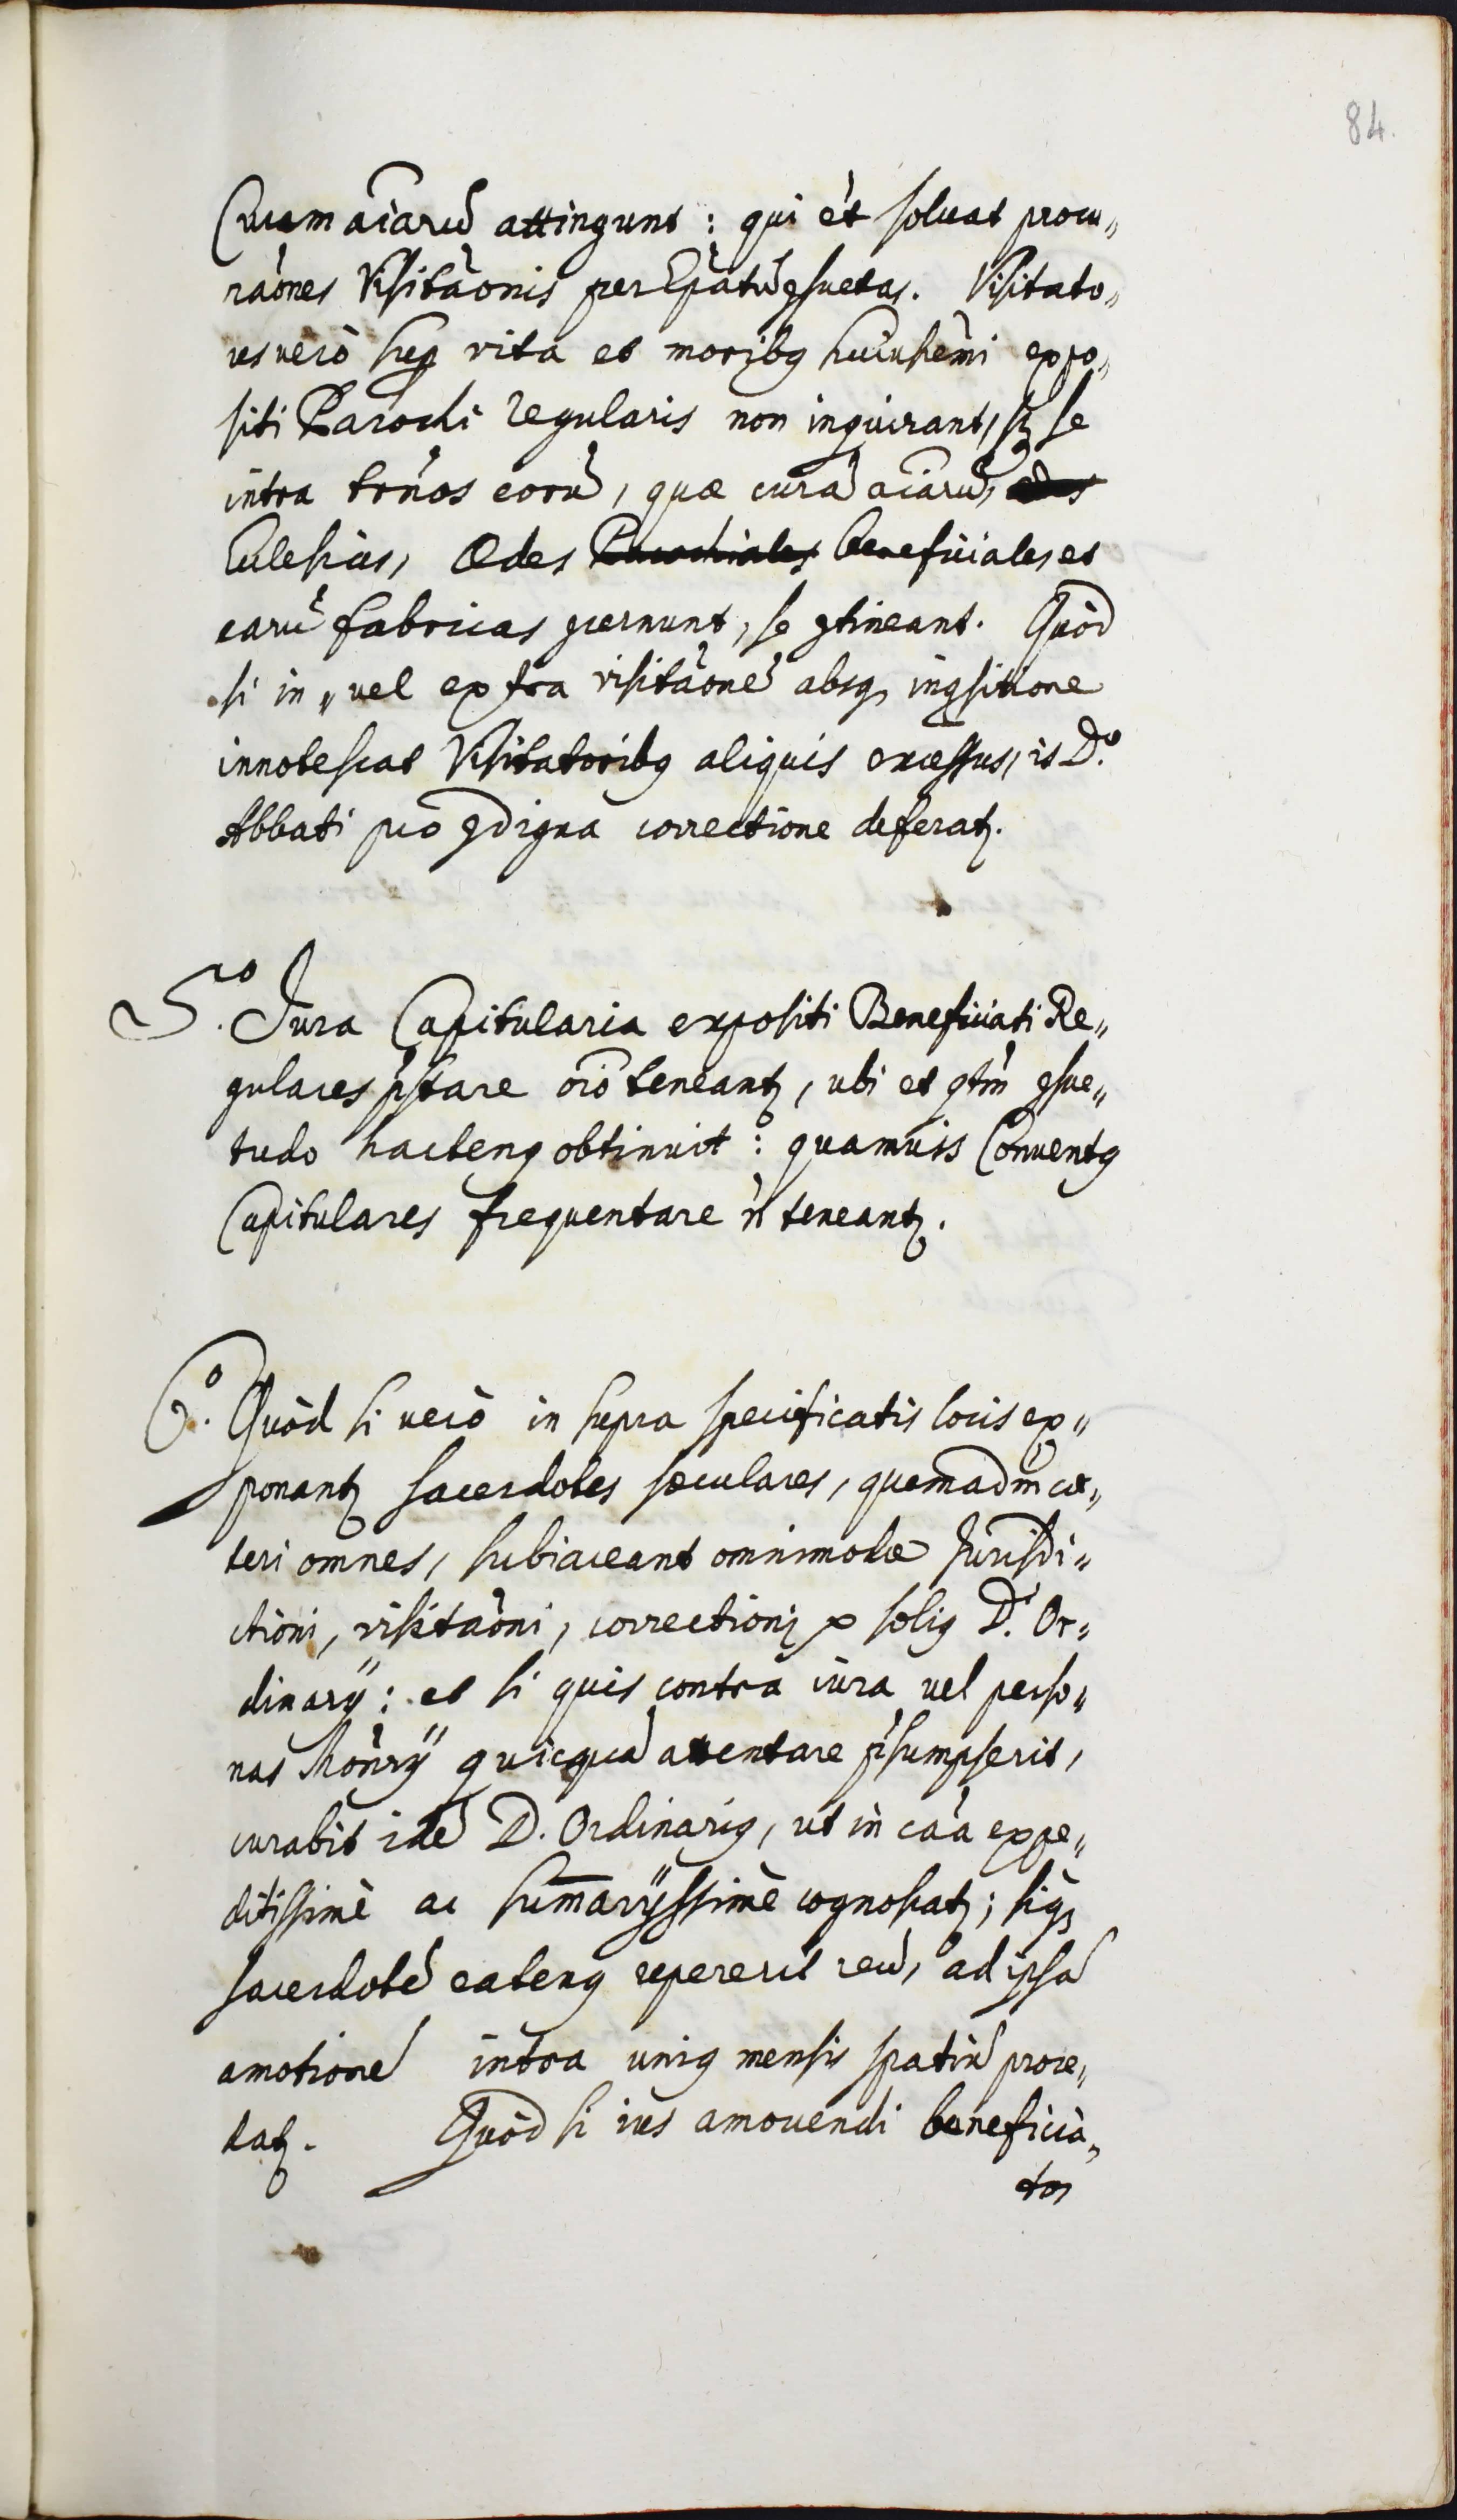 84.
Curam aiarū attingunt : qui et̀ soluat procu„
raōnes Visitaōnis per Epatū ꝯsuetas. Visitato„
res verò sup vita et moribꝫ huiushmi expo„
siti Parochi regularis non inquirant, sꝫ se
intra trnos eorū, quæ curā aiarū,
Ecclesias, Ædes Parochiales beneficiales et
earū fabricas ꝯcernunt, se ꝯtineant. Quòd
si in „ vel extra visitaōnē absqꝫ inqsitione
innotescat Visitatoribꝫ aliquis excessus, is D.º
Abbati pro ꝯdigna correctione deferatꝫ.
5.to Jura Capitularia expositi Beneficiati Re„
gulares pstare oīo teneantꝫ, ubi et qtm ꝯsue„
tudo hactenꝫ obtinuit : quamvis Conventꝫ
Capitulares frequentare ǹ teneantꝫ.
6.º Quòd si verò in supra specificatis locis ex„
ponantꝫ sacerdotes sæculares, quemadm cæ„
teri omnes, subiaceant omnimodæ Jurisdi„
ctioni, visitaōni, correctioniqꝫ solius D.i Or„
dinarÿ : et si quis contra iura vel perso„
nas Monrÿ quicquā attentare psumpserit,
curabit idē D. Ordinariꝫ, ut in caā expe„
ditissimè ac sum̄arÿssimè cognoscatꝫ ; siqꝫ
sacerdotē eatenꝫ repererit reū, ad ipsā
amotionē intra unius mensis spatiū proce„
datꝫ. Quòd si ius amovendi beneficia„
tos